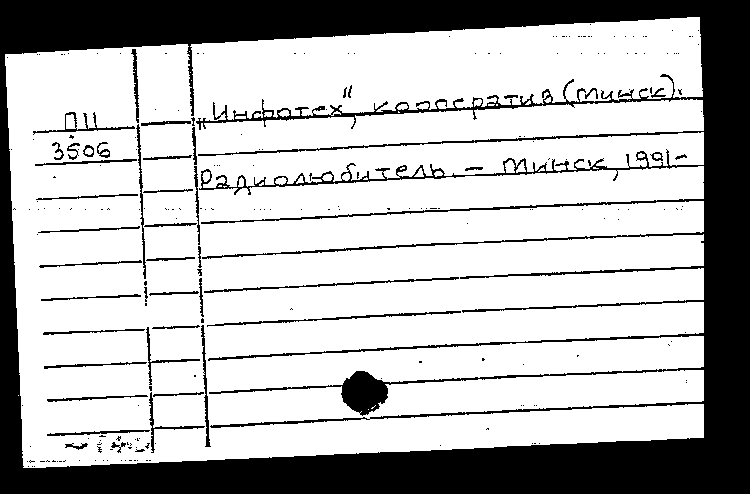 П11
3506
„Инфотех“, кооператив (Минск).
Радиолюбитель. – Минск, 1991–